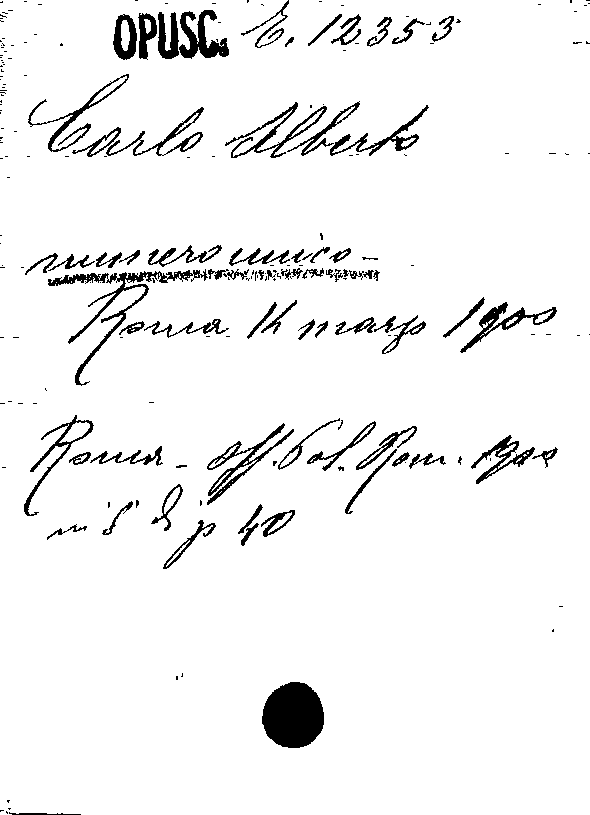 OPUSC. E. 12353
Carlo Alberto
numero unico -
Roma 14 marzo 1900
Roma - Off. Pol. Rom. 1900
in 8° di p 40